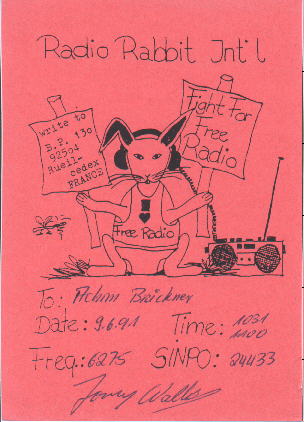 Radio Rabbit Int'l
write to
B.P. 130
92504
Rueil-
cedex
FRANCE
Fight For
Free
Radio
I
Free Radio
To: Achim Brückner
Date: 9.6.91 Time: 1031
1100
Freq.: 6275 SINPO: 24433